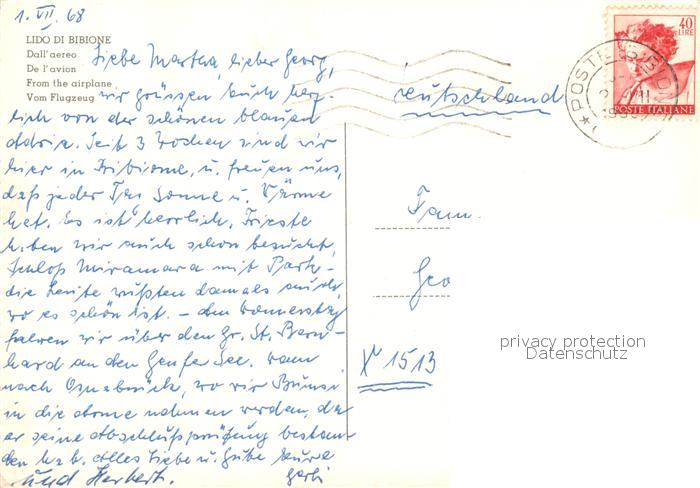 1. VII. 68
LIDO DI BIBIONE
Dall'aereo
De l'avion
From the airplane
Vom Flugzeug
Liebe Martha, lieber Georg,
wir grüssen Euch herz-
lich von der schönen blauen
Adria. Seit 3 Wochen sind wir
hier in Bibione, u. freuen uns,
daß jeder Tag Sonne u. Wärme
hat. Es ist herrlich. Trieste
haben wir auch schon besucht,
Schloß Miramara mit Park -
die Leute wußten damals auch,
wo es schön ist. - Am Donnerstag
fahren wir über den Gr. St. Bern-
hard an den Genfer See. Dann
nach Osnabrück, wo wir
in die Arme nehmen werden, da
er seine Abschlußprüfung bestan-
den hat. Alles Liebe u. Gute Eure
Gerti
und Herbert.
Deutschland
Fam.
Geo
X 1513
40
LIRE
POSTE ITALIANE
privacy protection
Datenschutz